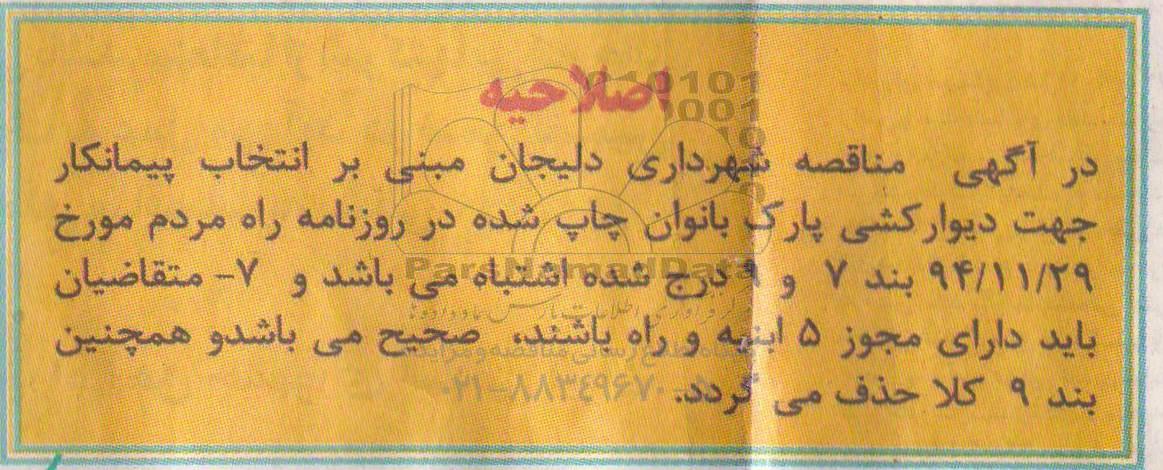 اصلاحیه
در آگهی مناقصه شهرداری دلیجان مبنی بر انتخاب پیمانکار
جهت دیوارکشی پارک بانوان چاپ شده در روزنامه راه مردم مورخ
۹۴/۱۱/۲۹ بند ۷ و ۹ درج شده اشتباه می باشد و ۷- متقاضیان
باید دارای مجوز ۵ ابنیه و راه باشند، صحیح می باشدو همچنین
بند ۹ کلا حذف می گردد.
010101
0001
10
ParsNamadData
۰۲۱-۸۸۳۴۹۶۷۰